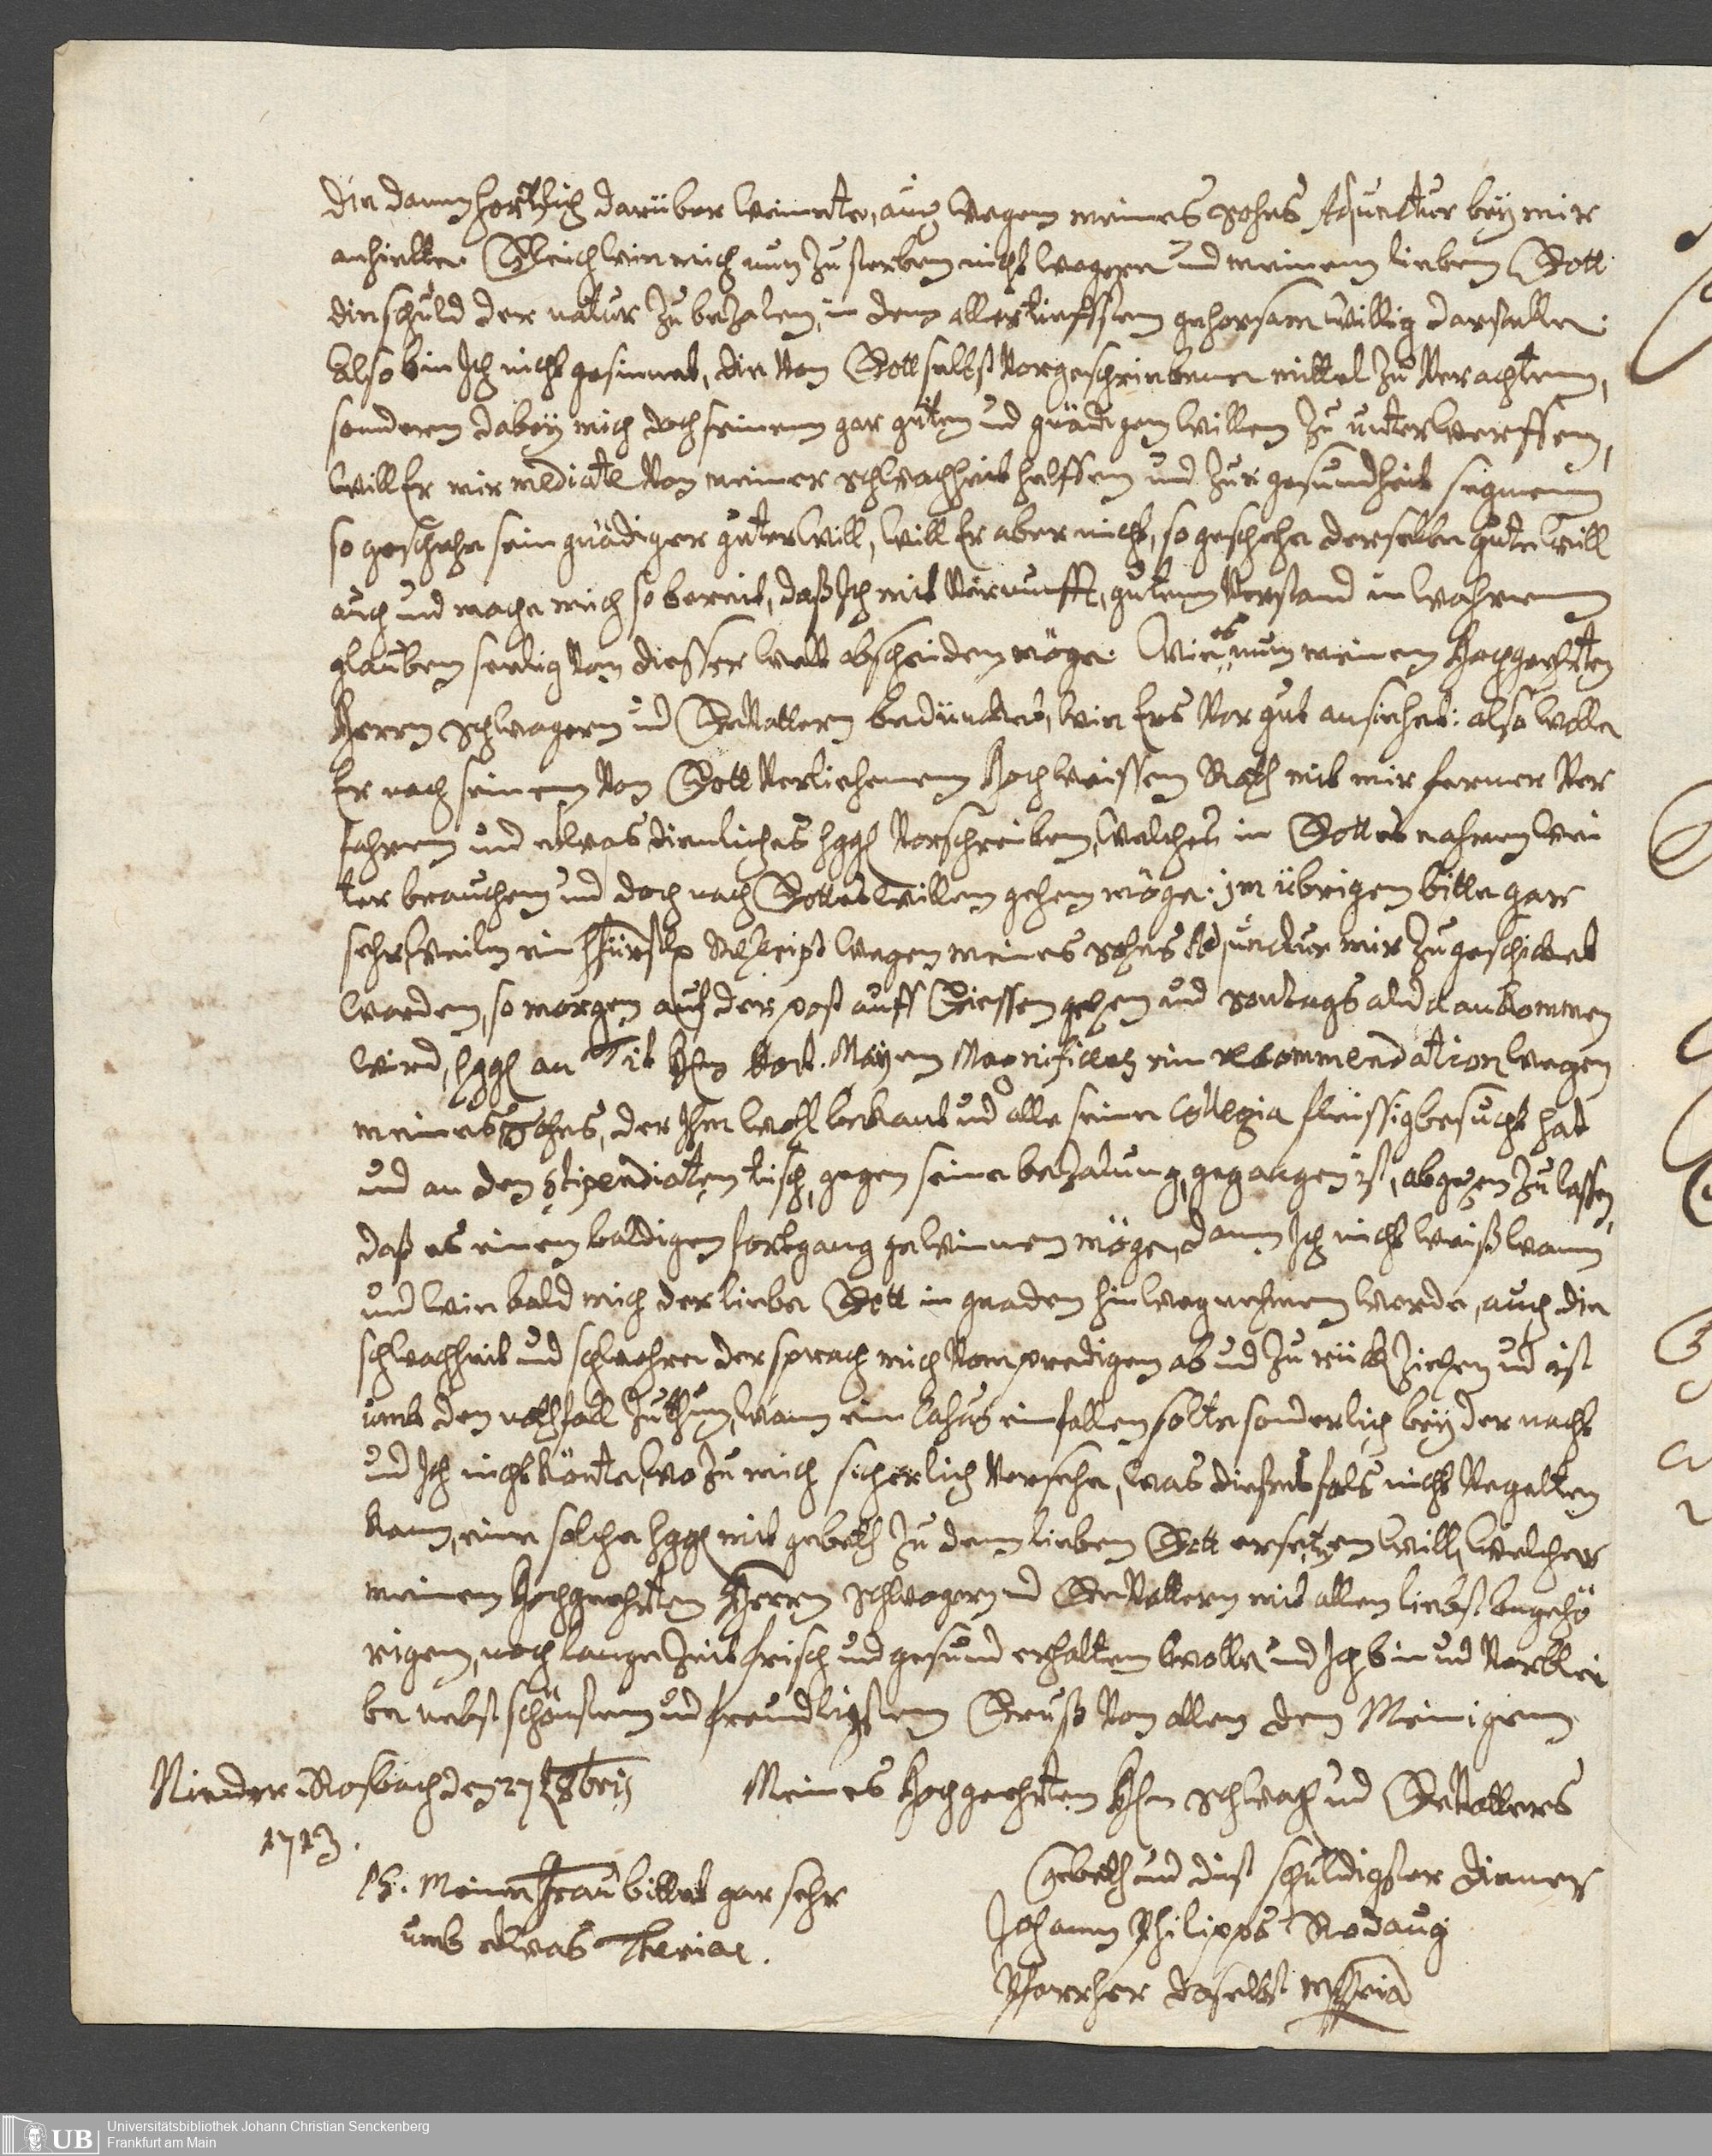 die dann hertzlich darüber weinete, auch wegen meines Sohns Adjunctur bey mir
anhielte. Gleich wie mich nun zu sterben nicht wegere und meinem lieben Gott
die schuld der natur zu bezalen, in dem allertieffstem gehorsam willig darstelle:
Also bin Ich nicht gesinnet, die Von Gott selbst Vorgeschriebene mittel zu Verachtenn,
sondern dabey mich doch seinem gar guten und gnädigen willen zu unterwerffenn,
will Er mir mediate Von meiner schwachheit helffen und zur gesundheit segnenn
so geschehe sein gnädiger guter will, will Er aber nicht, so geschehe derselbe gute will
auch und mache mich so bereit, daß Ich mit Vernunfft, gutem Verstand in wahrem
glauben seelig Von diesser welt abscheiden möge. Wie es nun meinem Hochgeehrten
Herrn Schwagern und GeVattern bedüncket, wie Ers Vor gut ansiehet: also wolle
Er nach seinem Von Gott Verliehenem Hochweissem Rath mit mir ferner Ver
fahren und etwas dienliches Vorschreiben, welches in Gottes nahmen wei
ter brauchen und doch nach Gottes willen gehen möge. im übrigen bitte gar
sehr, weilen ein wegen meines Sohns Adjunctur mir zugeschicket
worden, so morgen auf der post auff Giessen gehen und Sontags alda ankommen
wird, an Tit Hen Mayen Magnificenz ein recommendation wegen
meines Sohns, der Ihm wohl bekant und alle seine Collegia fleissig besucht hat
und an den Stipendiaten tisch, gegen seine bezalung, gegangen ist, abgehen zu lassen,
daß es einen baldigen fortgang gewinnen möge, dann Ich nicht weiß wann
und wie bald mich der liebe Gott in gnaden hinwegnehmen werde, auch die
schwachheit und schwehre der sprach mich Vom predigen ab und zu rück ziehen und ist
umb den nothfall zu thun, wann ein Casus einfallen solte sonderlich bey der nacht
und Ich nicht könte, wo zu mich sicherlich Versehe, was diesfals nicht Vergelten
kann, eine solche mit gebeth zu dem lieben Gott ersetzen will, welcher
meinem Hochgeehrten Herrn Schwagern und GeVattern mit allen liebst angehö
rigen, noch lange Zeit frisch und gesund erhalten wolle und Ich bin und Verblei
be nebst schönstem und freundligstem Gruß Von allen den Meinigenn
Nieder Rosbach den 27 8bris
1713.
Meines Hochgeehrten Hen Schwag und GeVatters
Gebeth und dinst schuldigster diener
Johann Philipps Rodaug
Pfarrher daselbst mppria
PS. Meine Frau bittet gar sehr
umb etwas Theriac.